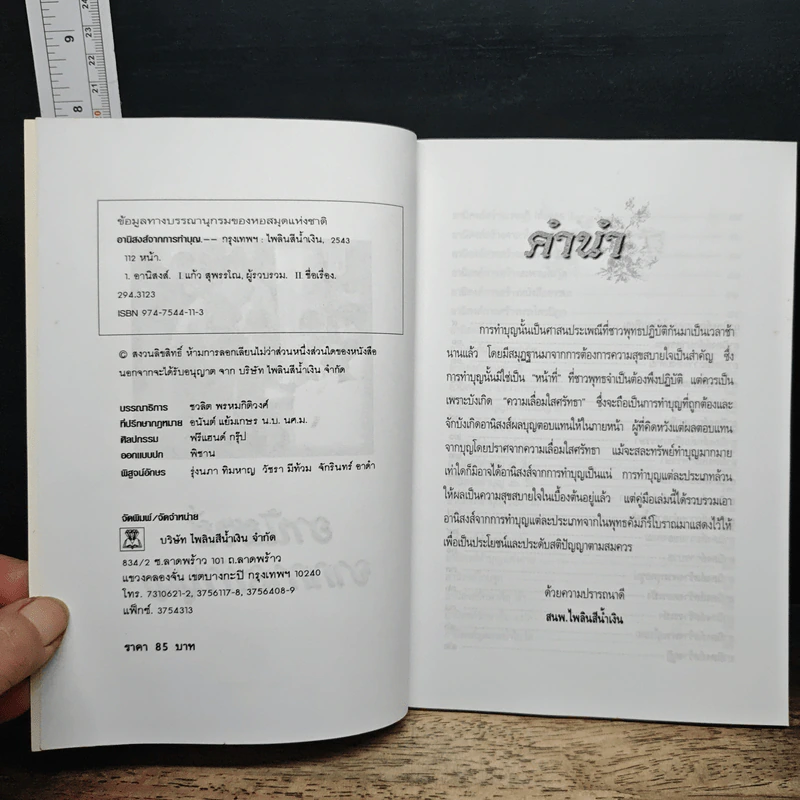 9
8
24
23
22
21
ข้อมูลทางบรรณานุกรมของหอสมุดแห่งชาติ
อานิสงส์จากการทำบุญ.-- กรุงเทพฯ : ไพลินสีน้ำเงิน, 2543
112 หน้า.
1. อานิสงส์. I แก้ว สุพรรโณ, ผู้รวบรวม. II ชื่อเรื่อง.
294.3123
ISBN 974-7544-11-3
© สงวนลิขสิทธิ์ ห้ามการลอกเลียนไม่ว่าส่วนหนึ่งส่วนใดของหนังสือ
นอกจากจะได้รับอนุญาต จาก บริษัท ไพลินสีน้ำเงิน จำกัด
บรรณาธิการ ชวลิต พรหมกิติวงศ์
ที่ปรึกษากฎหมาย อนันต์ แย้มเกษร น.บ. นศ.ม.
ศิลปกรรม ฟรีแฮนด์ กรุ๊ป
ออกแบบปก พิชาน
พิสูจน์อักษร รุ่งนภา ทิมหาญ วัชรา มีท้วม จักรินทร์ อาดำ
จัดพิมพ์/จัดจำหน่าย
บริษัท ไพลินสีน้ำเงิน จำกัด
834/2 ซ.ลาดพร้าว 101 ถ.ลาดพร้าว
แขวงคลองจั่น เขตบางกะปิ กรุงเทพฯ 10240
โทร. 7310621-2, 3756117-8, 3756408-9
แฟ็กซ์. 3754313
ราคา 85 บาท
คำนำ
การทำบุญนั้นเป็นศาสนประเพณีที่ชาวพุทธปฏิบัติกันมาเป็นเวลาช้า
นานแล้ว โดยมีสมุฏฐานมาจากการต้องการความสุขสบายใจเป็นสำคัญ ซึ่ง
การทำบุญนั้นมิใช่เป็น "หน้าที่" ที่ชาวพุทธจำเป็นต้องพึงปฏิบัติ แต่ควรเป็น
เพราะบังเกิด "ความเลื่อมใสศรัทธา" ซึ่งจะถือเป็นการทำบุญที่ถูกต้องและ
จักบังเกิดอานิสงส์ผลบุญตอบแทนให้ในภายหน้า ผู้ที่คิดหวังแต่ผลตอบแทน
จากบุญโดยปราศจากความเลื่อมใสศรัทธา แม้จะสละทรัพย์ทำบุญมากมาย
เท่าใดก็มิอาจได้อานิสงส์จากการทำบุญเป็นแน่ การทำบุญแต่ละประเภทล้วน
ให้ผลเป็นความสุขสบายใจในเบื้องต้นอยู่แล้ว แต่คู่มือเล่มนี้ได้รวบรวมเอา
อานิสงส์จากการทำบุญแต่ละประเภทจากในพุทธคัมภีร์โบราณมาแสดงไว้ให้
เพื่อเป็นประโยชน์และประดับสติปัญญาตามสมควร
ด้วยความปรารถนาดี
สนพ.ไพลินสีน้ำเงิน